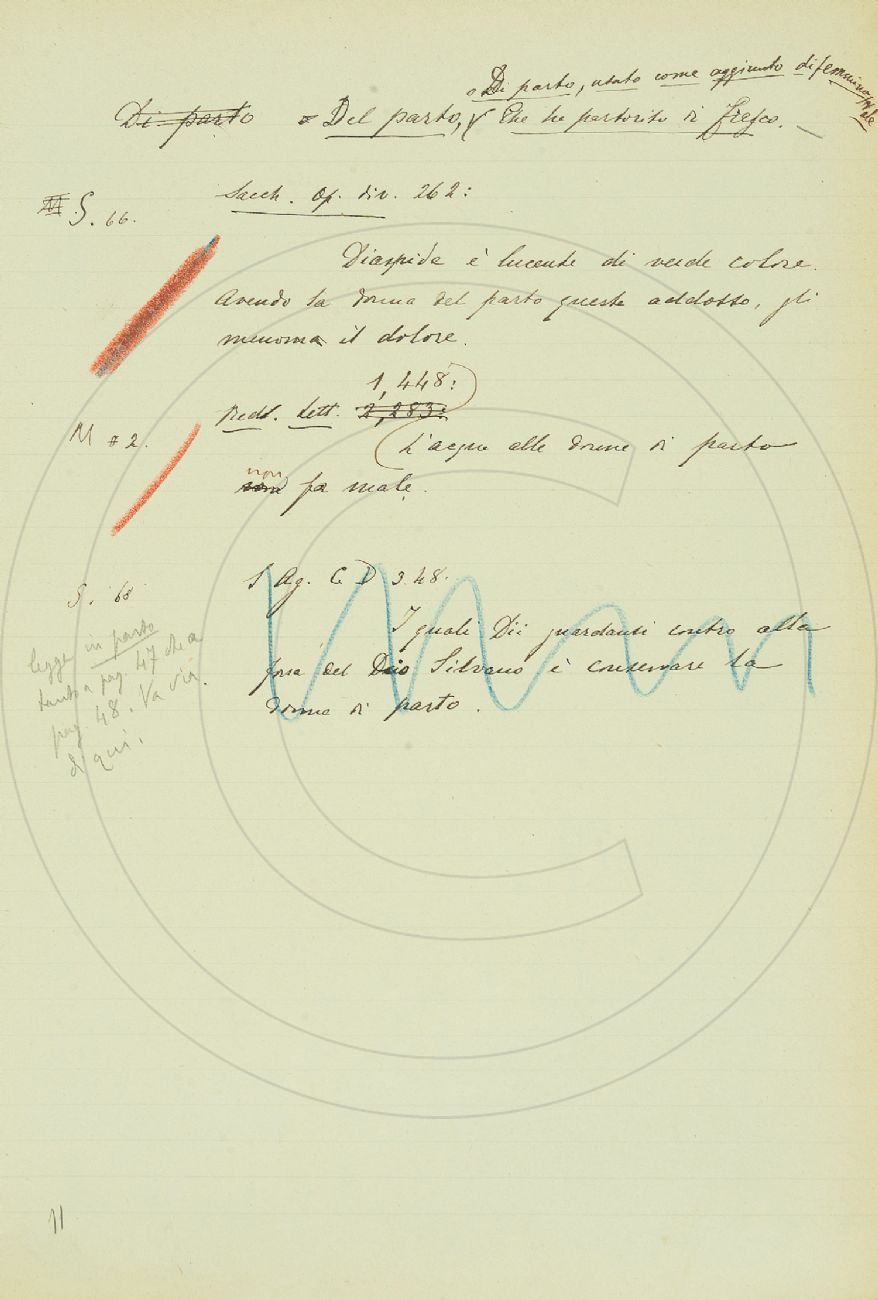 o Di parto, usato come aggiunto di femmina, vale
Di parto Del parto, Che ha partorito di fresco.
S. 66.
Sacch. Op. div. 262:
Diaspida è lucente di verde colore.
Avendo la donna del parto queste addosso, gli
menoma il dolore.
1,448:
Red. Lett. 2,283:
M 2.
L'acqua alle donne di parto
non fa male.
S. 68
S Ag. C D 3.48.
I quali Dii guardanti contro alla
forza del Dio Silvano è conservare la
donna di parto.
legge in parto
tanto a pag. 47 che a
pag. 48. Va via
di qui.
11